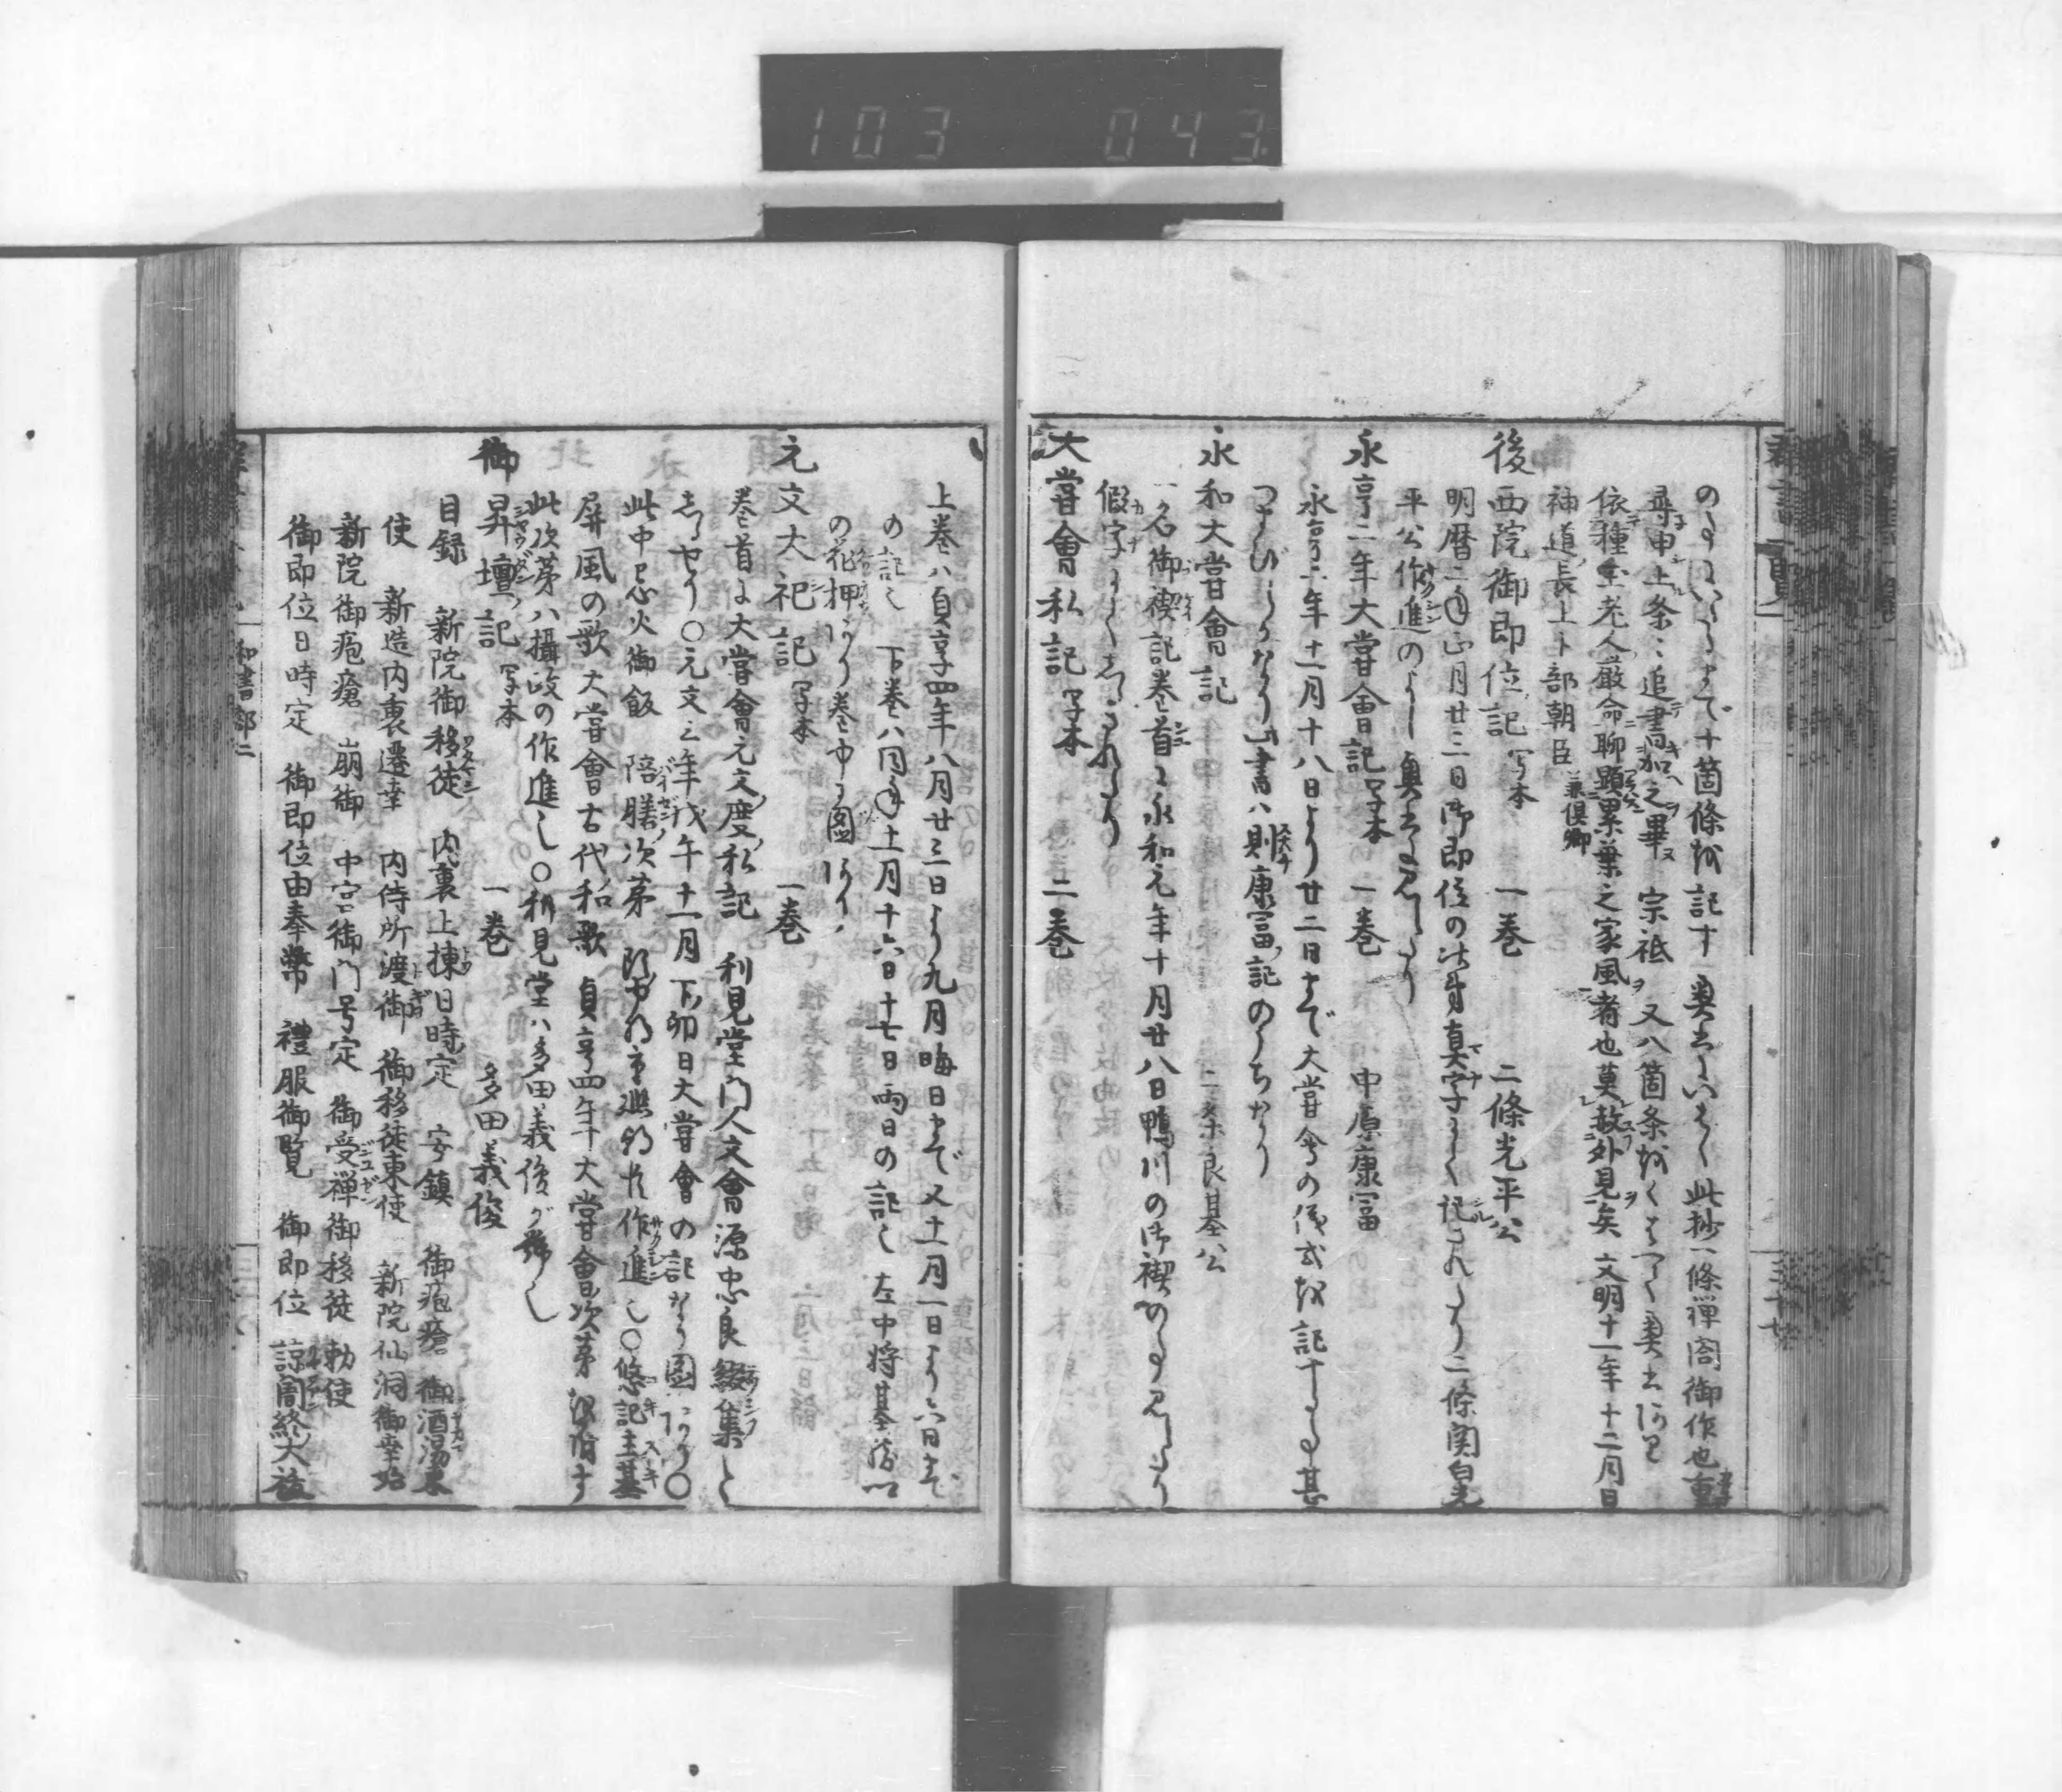 103 043
群書一覽
のよしいへるまで十箇條を記す 奥書にいはく 此抄一條禅閤御作也重
尋申上条々追書加之畢 宗祗 又八箇条をくはへて奥書あり
依種玉老人厳命聊顕累葉之家風者也莫敢外見矣 文明十一年十二月日
神道長上卜部朝臣 兼倶卿
後西院御即位記 写本 一巻 二條光平公
明暦二年正月廿三日御即位の次第真字にて記されたり二條関白光
平公作進のよし奥書に見えたり
永享二年大嘗會記 写本 一巻 中原康冨
永享二年十一月十八日より廿二日まで大嘗會の儀式を記す 甚
つまびらかなり此書ハ則康冨記のうちなり
永和大嘗會記 二条良基公
一名御禊記巻首に永和元年十月廿八日鴨川の御禊の事見えたり
假字にてしるされたり
大嘗會私記 写本 二巻
三十六
上巻ハ貞享四年八月廿三日より九月晦日まで又十一月一日より六日まで
の記し 下巻ハ同年十一月十六日十七日両日の記し 左中将基勝以
の花押あり巻中に圖あり
元文大祀記 写本 一巻
巻首に大嘗會元文度私記 利見堂門人文會源忠良綴集と
しるせり〇元文三年戊午十一月下卯日大嘗會の記なり圖あり〇
此中忌火御飯 陪膳次第 作進し〇悠記主基
屏風の歌 大嘗會古代和歌 貞享四年大嘗會次第を附す
此次第ハ攝政の作進し〇利見堂ハ多田義俊が號し
御昇壇記 写本 一巻 多田義俊
目録 新院御移徒 内裏上棟日時定 安鎮 御疱瘡 御酒湯
使 新造内裏遷幸 内侍所渡御 御移徒東使 新院仙洞御幸始
新院御疱瘡 崩御 中宮御門号定 御受禅御移徒 勅使
御即位日時定 御即位由奉幣 禮服御覧 御即位 諒闇終大祓
和書部二